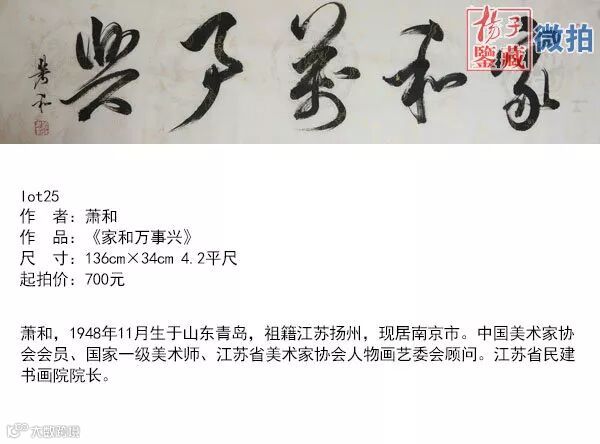 家和萬事興
萧和
扬子
鑒藏
微拍
lot25
作　者：萧和
作　品：《家和万事兴》
尺　寸：136cm×34cm 4.2平尺
起拍价：700元
萧和，1948年11月生于山东青岛，祖籍江苏扬州，现居南京市。中国美术家协
会会员、国家一级美术师、江苏省美术家协会人物画艺委会顾问。江苏省民建
书画院院长。
大数跨境